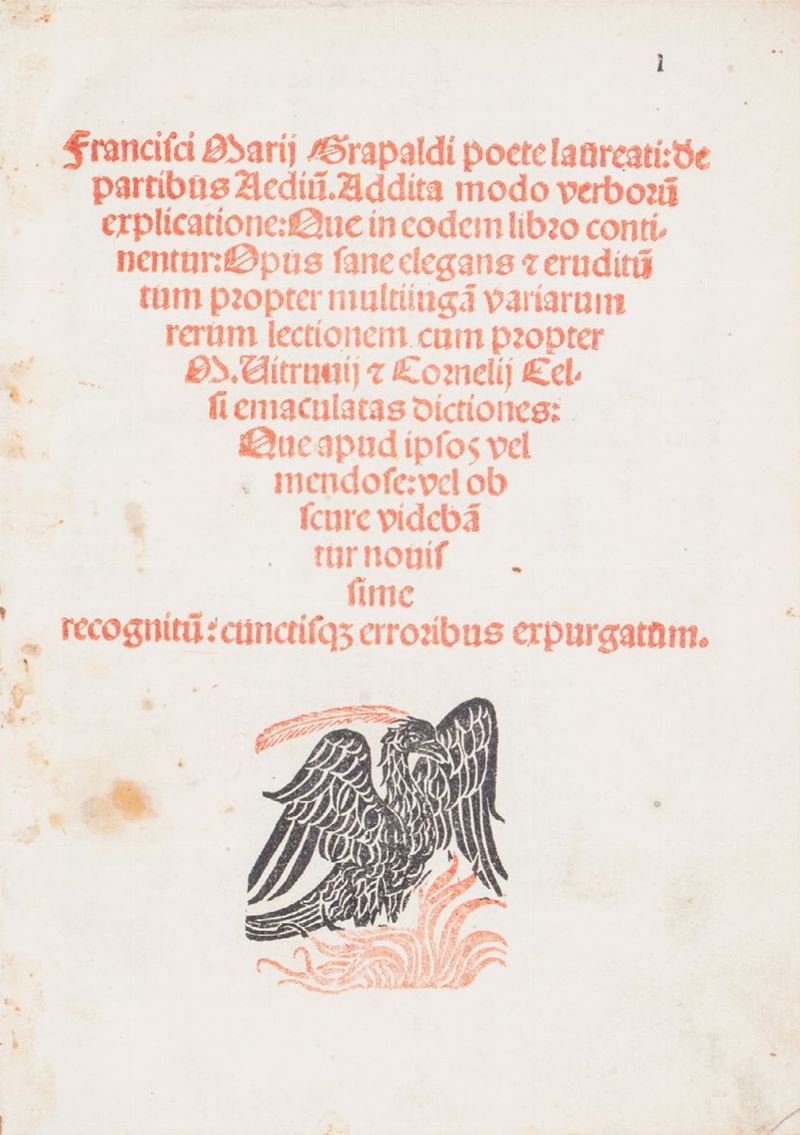 1
Franciſci Marij Grapaldi poete laureati: de
partibus Aediū. Addita modo verborū
explicatione: Que in eodem libro conti-
nentur: Opus ſane elegans ⁊ eruditū
tum propter multiiugā variarum
rerum lectionem cum propter
M. Uitruuij ⁊ Cornelij Cel-
ſi emaculatas dictiones:
Que apud ipſoꝫ vel
mendoſe: vel ob
ſcure videbā
tur nouiſ
ſime
recognitū: cunctiſqꝫ erroribus expurgatum.